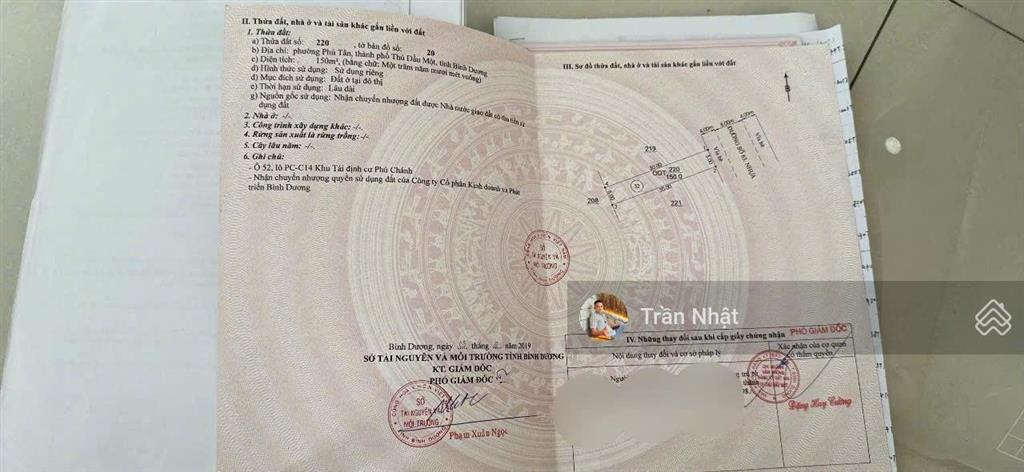 II. Thửa đất, nhà ở và tài sản khác gắn liền với đất
1. Thửa đất:
a) Thửa đất số: 220 , tờ bản đồ số: 20
b) Địa chỉ: phường Phú Tân, thành phố Thủ Dầu Một, tỉnh Bình Dương
c) Diện tích: 150m², (bằng chữ: Một trăm năm mươi mét vuông)
d) Hình thức sử dụng: Sử dụng riêng
đ) Mục đích sử dụng: Đất ở tại đô thị
e) Thời hạn sử dụng: Lâu dài
g) Nguồn gốc sử dụng: Nhận chuyển nhượng đất được Nhà nước giao đất có thu tiền sử
dụng đất
2. Nhà ở: -/-
3. Công trình xây dựng khác: -/-
4. Rừng sản xuất là rừng trồng: -/-
5. Cây lâu năm: -/-.
6. Ghi chú:
- Ô 52, lô PC-C14 Khu Tái định cư Phú Chánh
- Nhận chuyển nhượng quyền sử dụng đất của Công ty Cổ phần Kinh doanh và Phát
triển Bình Dương
Bình Dương, ngày năm 2019
SỞ TÀI NGUYÊN VÀ MÔI TRƯỜNG TỈNH BÌNH DƯƠNG
KT. GIÁM ĐỐC
PHÓ GIÁM ĐỐC
SỞ
TÀI NGUYÊN VÀ
MÔI TRƯỜNG
TỈNH BÌNH DƯƠNG
Phạm Xuân Ngọc
SỞ
TÀI NGUYÊN VÀ
MÔI TRƯỜNG
III. Sơ đồ thửa đất, nhà ở và tài sản khác gắn liền với đất
B
4.00m 6.00m 4.00m
Vỉa hè
ĐƯỜNG SỐ NHỰA
Vỉa hè
219
30.00
5.00
ODT 220
150.0
52
30.00
5.00
208
221
Trần Nhật
IV. Những thay đổi sau khi cấp giấy chứng nhận
PHÓ GIÁM ĐỐC
Nội dung thay đổi và cơ sở pháp lý
Xác nhận của cơ quan
có thẩm quyền
Đặng Huy Cường